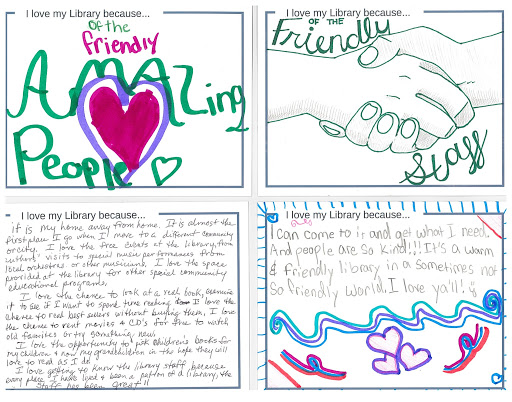 I love my Library because...
of the
friendly
AMAZing
People
I love my Library because...
OF THE
Friendly
Staff
I love my Library because...
it is my home away from home. It is almost the
first place I go when I move to a different community
or city. I love the free events at the library, from
visits to special music performances from
local orchestras or other musicians. I love the space
provided at the library for other special community
educational programs.
I love the chance to look at a real book, examine
it to see if I want to spend time reading I love the
chance to read best sellers without buying them. I love
the chance to rent movies & CD's for free to watch
old favorites or try something new
I love the opportunity to pick children's books for
my children & now my grandchildren in the hope they will
love to read as I do
I love getting to know the library staff because
every place I have lived & been a patron of a library, the
staff has been great!!
I love my Library because...
I can come to it and get what I need.
And people are so kind!!! It's a warm
& friendly library in a sometimes not
so friendly world. I love ya'll!